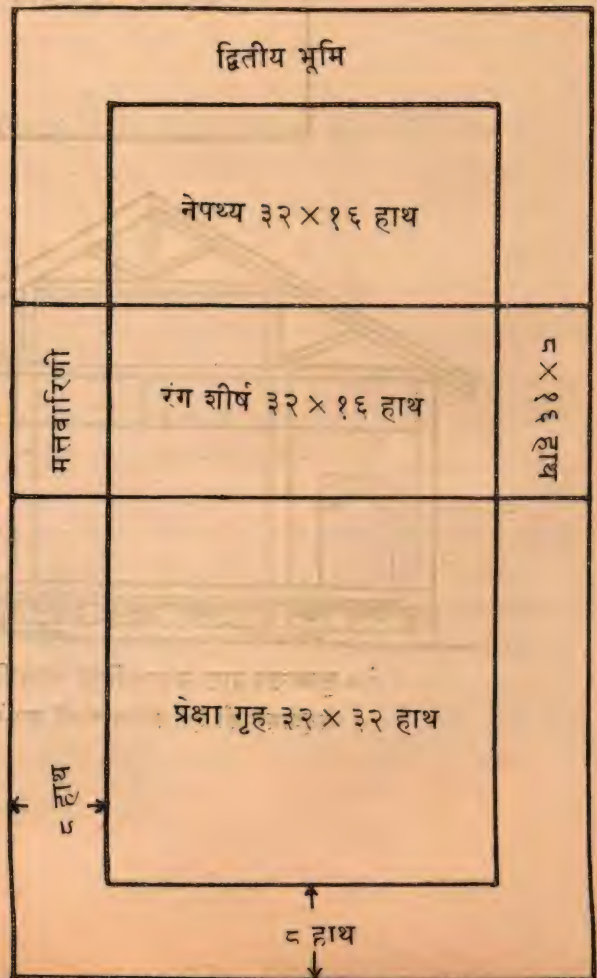 द्वितीय भूमि
नेपथ्य ३२ × १६ हाथ
मत्तवारिणी
रंग शीर्ष ३२ × १६ हाथ
८ × १६ हाथ
प्रेक्षा गृह ३२ × ३२ हाथ
८ हाथ
८ हाथ